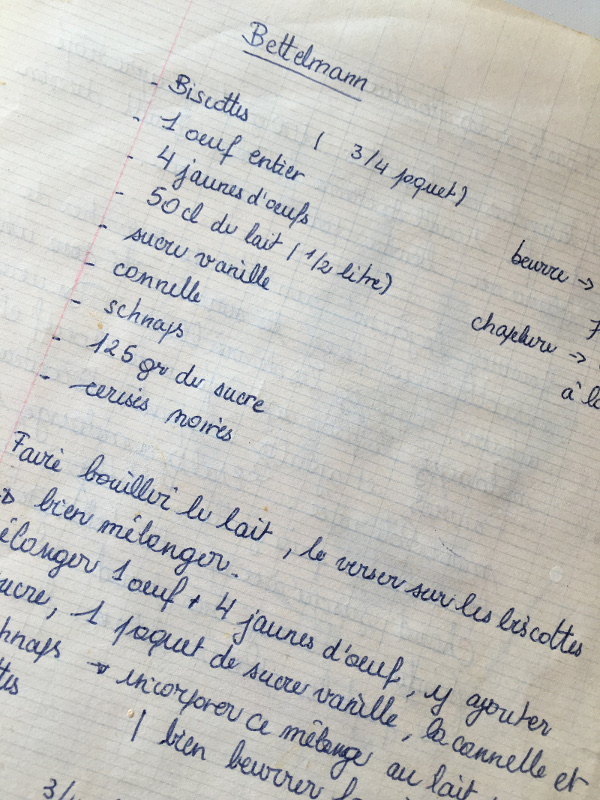 Bettelmann
- Biscottes ( 3/4 paquet)
- 1 oeuf entier
- 4 jaunes d'oeufs
- 50 cl de lait (1/2 litre)
- sucre vanille
- cannelle
- schnaps
- 125 gr de sucre
- cerises noires
beurre →
chapelure →
à la
Faire bouillir le lait, le verser sur les biscottes
→ bien mélanger.
élanger 1 oeuf + 4 jaunes d'oeuf, y ajouter
ucre, 1 paquet de sucre vanille, la cannelle et
hnaps → incorporer ce mélange au lait
ttes
( bien beurrer
3/4